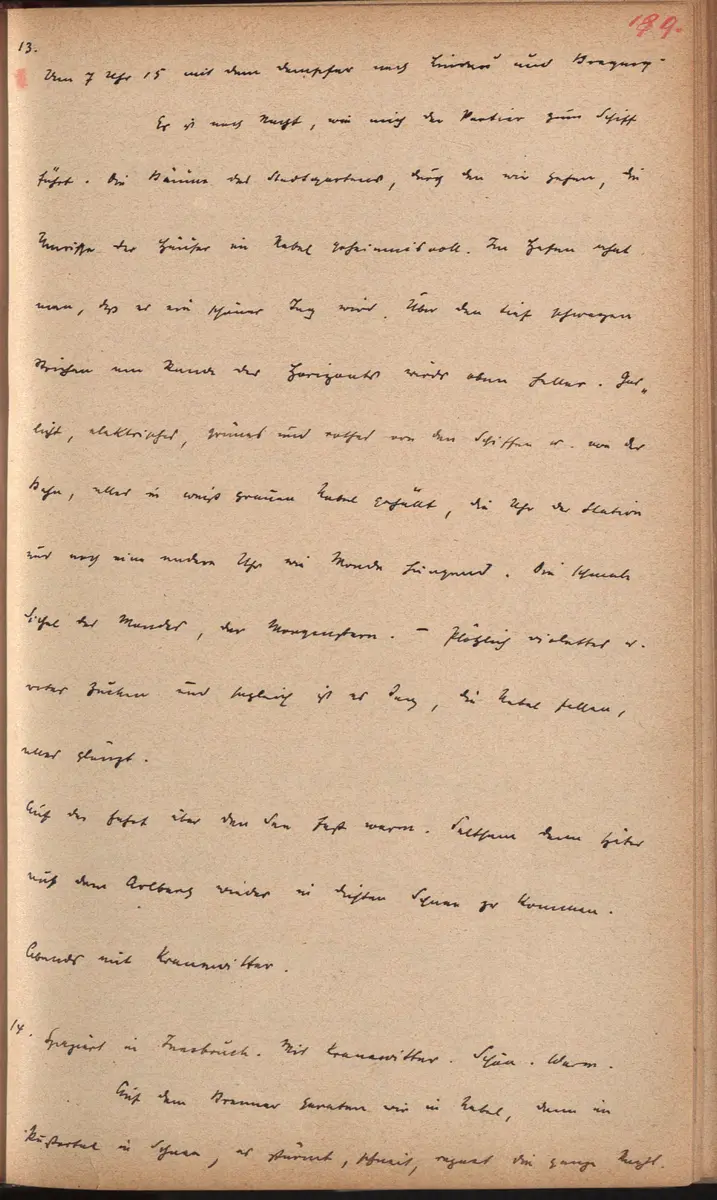 189.
13.
Um 7 Uhr 15 mit dem Dampfer nach Lindau und Bregenz.
Es ist noch Nacht, wie mich der Portier zum Schiff
führt. Die Bäume des Stadtgartens, durch den wir gehen, die
Umrisse der Häuser im Nebel geheimnisvoll. Im Hafen ahnt
man, daß es ein schöner Tag wird. Über den tief schwarzen
Strichen am Rande des Horizonts wirds oben heller. Gas-
licht, elektrisches, grünes und rothes von den Schiffen u. von der
Bahn, alles in weiß grauen Nebel gehüllt, die Uhr der Station
und noch eine andere Uhr wie Monde hängend. Die schmale
Sichel des Mondes, der Morgenstern. – Plötzlich violettes u.
rotes Zucken und sogleich ist es Tag, die Nebel fallen,
alles glänzt.
Auf der Fahrt über den See fast warm. Seltsam dann später
auf dem Arlberg wieder in dichten Schnee zu kommen.
Abends mit Kranewitter.
14.
Spaziert in Innsbruck. Mit Kranewitter. Schön. Warm.
Auf dem Brenner geraten wir in Nebel, dann im
Pustertal in Schnee, es stürmt, schneit, regnet die ganze Nacht.